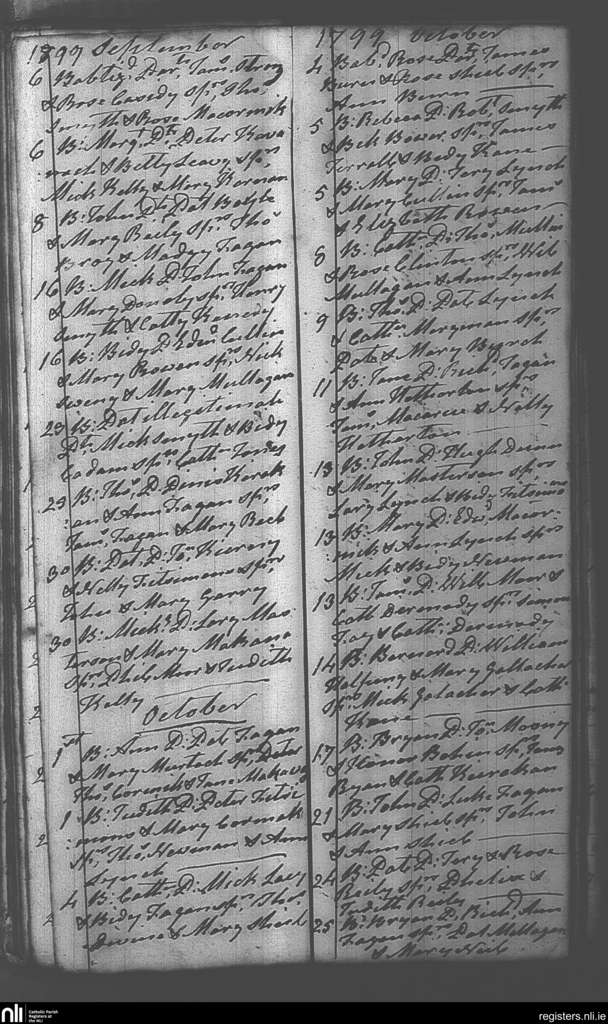 1799 September
6 Babtizd. Dar. Jams. Strong
& Rose Casedy Sprs. Thos.
Smyth & Rose Macormik
6 B: Margt. Dr. Peter Kava
nach & Betty Leavy Sprs.
Mick Kelly & Mary Kiernan
8 B: John D: Pat Boyle
& Mary Reily Sprs. Thos.
Bray & Madgy Fagan
16 B: Mick D: John Fagan
& Mary Donoly Sprs. Henry
Smyth & Catty Kenedy
16 B: Bidy D: Edwd. Cullin
& Mary Rowen Sprs. Mick
Sweny & Mary Mullagan
23 B: Pat illegitimate
D: Mick Smyth & Bidy
Cadam Sprs. Cath: Jones
23 B: Thos. D: Denis Kerak
:an & Ann Fagan Sprs.
Jams. Fagan & Mary
30 B: Pat D: Jon. Kierny
& Nelly Fitsimons Sprs.
& Mary Garry
30 B: Michl. D: Lary Mas
terson & Mary Makana
Sprs. Phil: Moor & Judith
Kelly
October
1st B: Ann D: Pat Fagan
& Mary Murtach Sprs. Peter
Thos. & Jane
1 B: Judith D: Peter Fitsi
:mons & Mary Cormak
Sprs. Thos. Newman & Ann
Lynch
4 B: Cath: D: Mick Lacy
& Bidy Fagan Sprs. Thos.
& Mary Sheil
1799 October
4 Babd. Rose Dar. James
Burn & Rose Sheil Sprs.
Ann Burn
5 B: Rebeca D: Robt. Smyth
& Bek Bower Sprs. James
Ferrall & Bidy Kane
5 B: Mary D: Tery Lynch
& Mary Cullin Sprs. Jams.
& Elizabath
8 B: Cath: D: Thos. Mullin
& Rose Clinton Sprs.
Mullagan & Ann Lynch
9 B: Thos. D: Pat: Lynch
& Cath: Meryman Sprs.
Pat: & Mary Lynch
11 B: Jane D: Richd. Fagan
& Ann Hetherton Sprs.
Jams. & Nelly
Hetherton
13 B: John D: Hugh Dunn
& Mary Masterson Sprs.
Lary Lynch & Bidy Fitsimo
13 B: Mary D: Edwd. Macor
mick & Ann Lynch Sprs.
Mick & Bidy Newman
13 B: Jams. D: Willm. Moor &
Cath Dermody Sprs. Simon
Fay & Cath: Dermody
14 B: Bernard D: William
Halfpeny & Mary Gallacher
Sprs. Mick Galacher & Cath:
Kane
17 B: Bryan D: Jon. Mooney
& Elenor Sprs. Jams.
Ryan & Cath Keerakan
21 B: John D: Luke Fagan
& Mary Shiel Sprs. John
& Ann Shiel
24 B: Pat: D: Tery & Rose
Reily Sprs. Phelix &
Judith Reily
25 B: Bryan D: Richd. Ann
Fagan Sprs. Pat Mullagan
& Mary
nli
Catholic Parish
Registers at
the NLI
registers.nli.ie